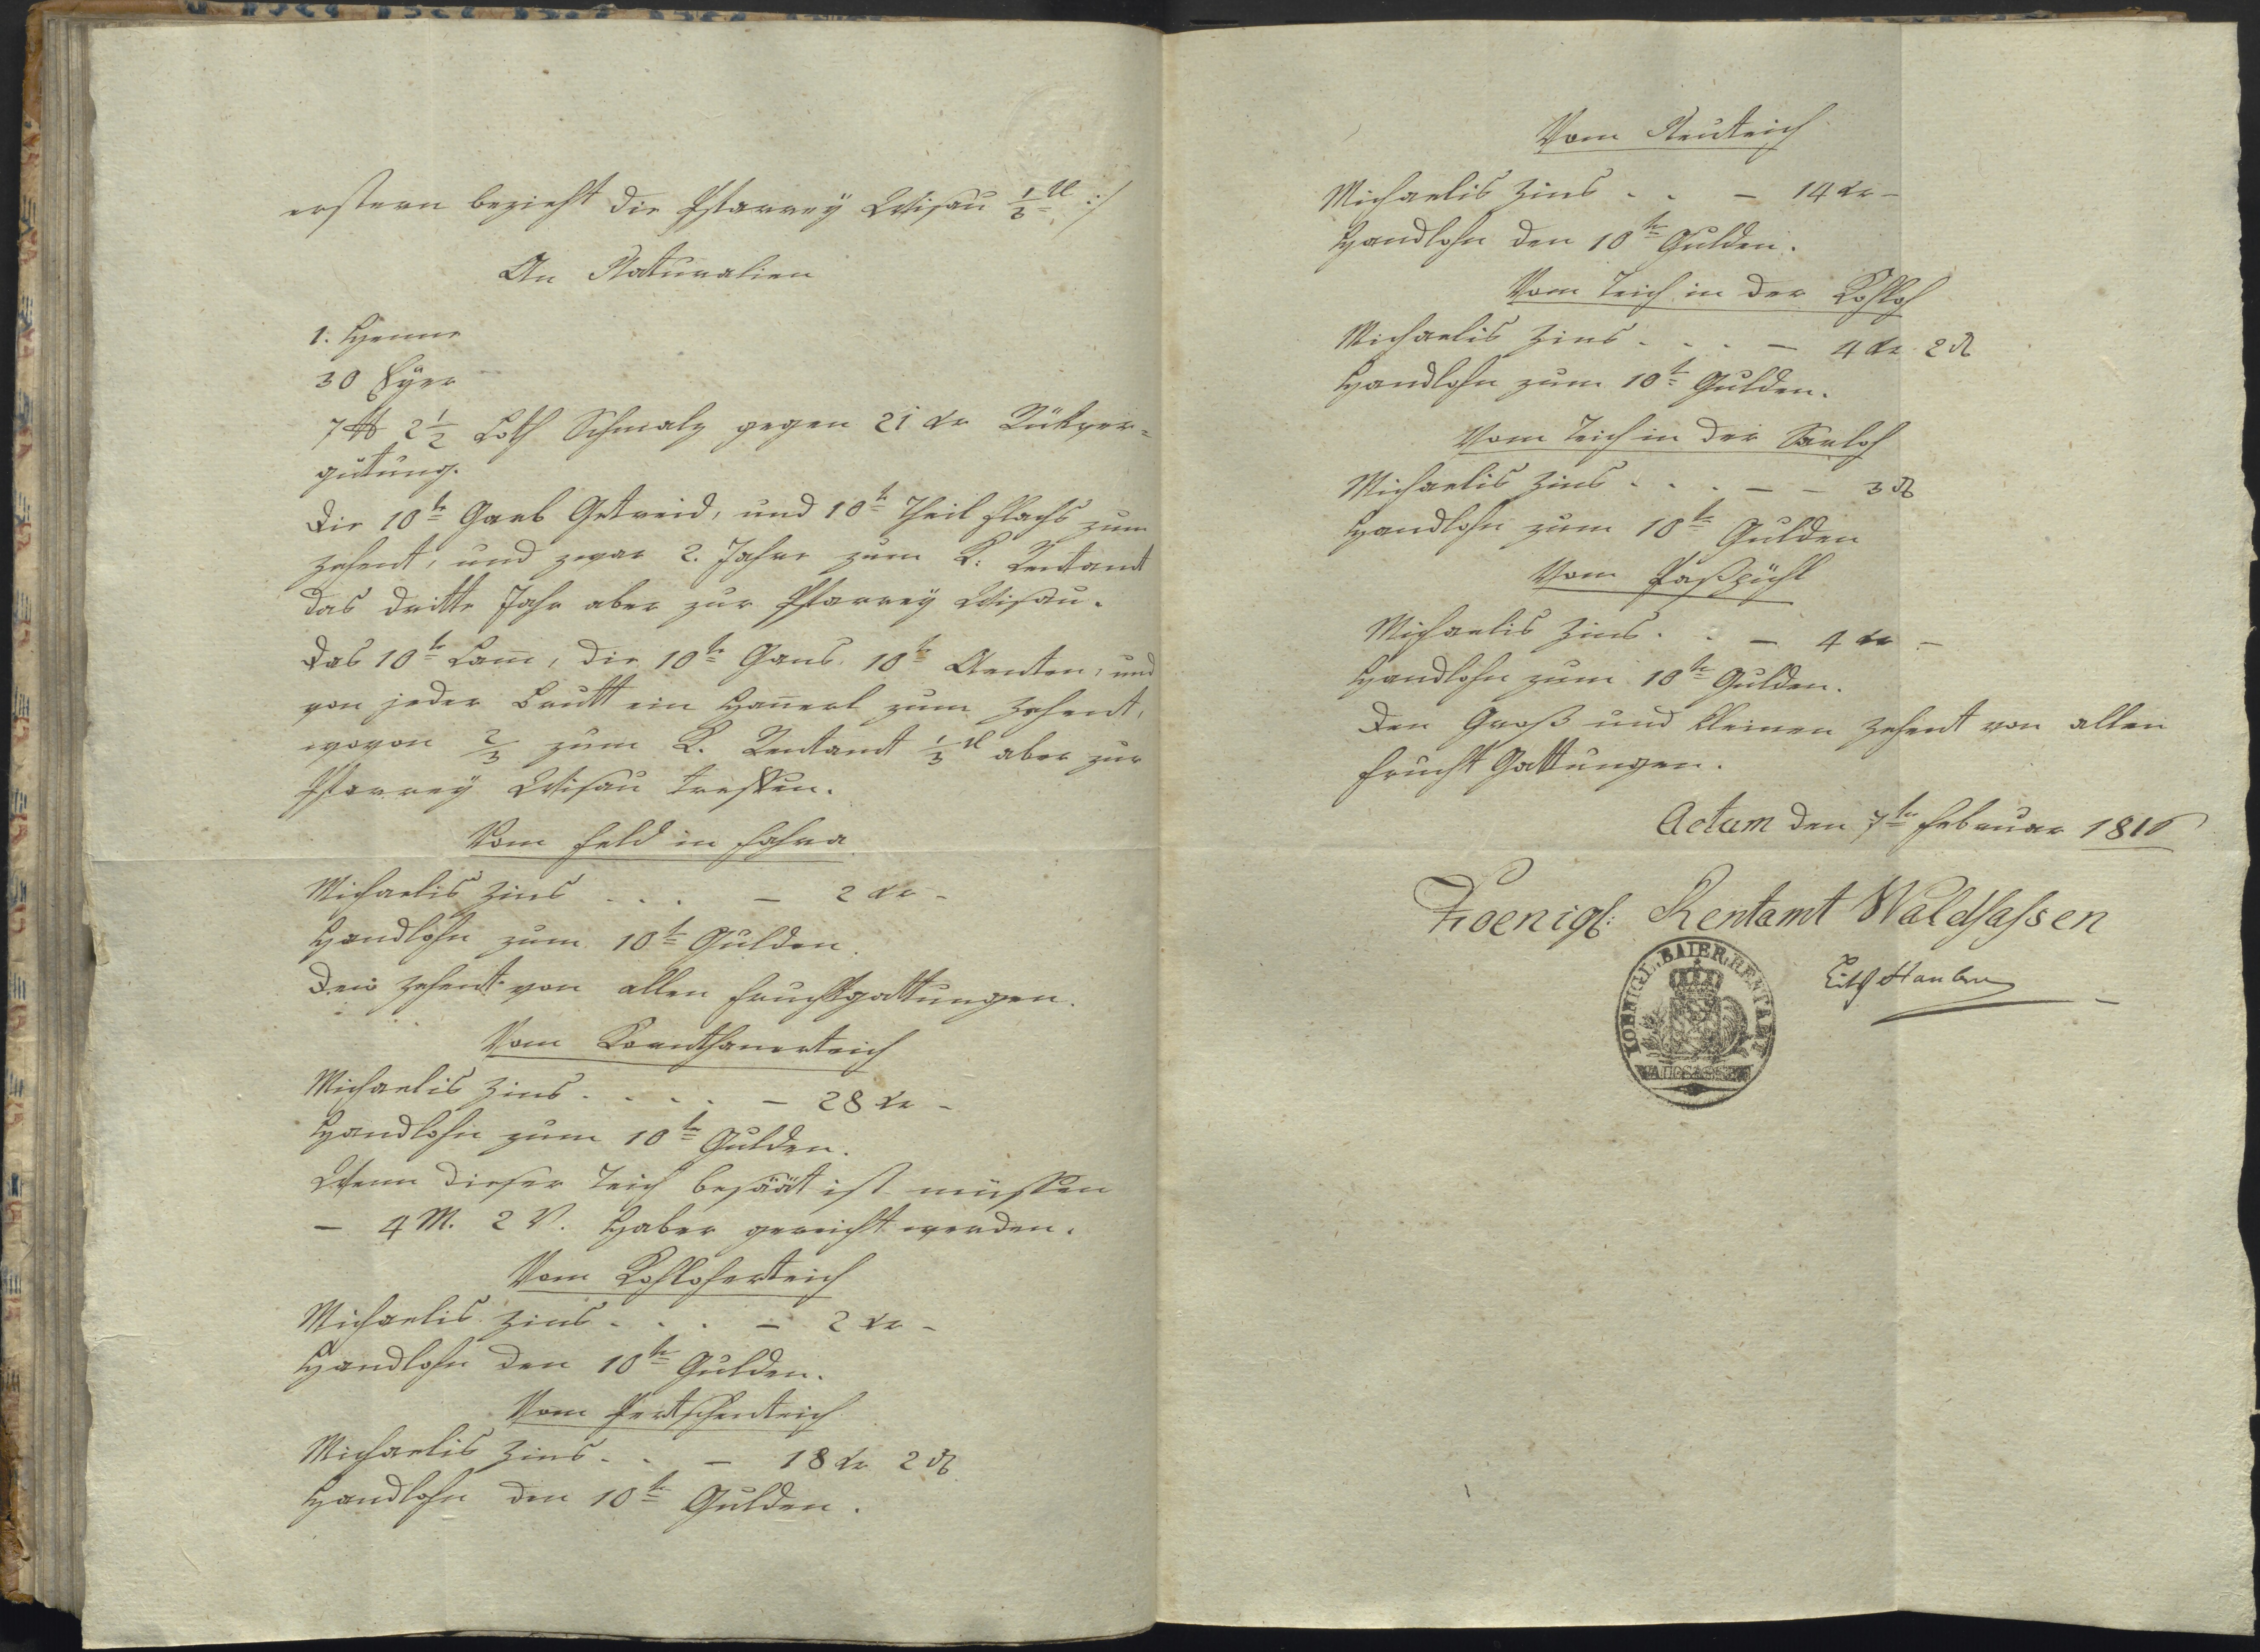 erstern bezieht die Pfarrey Wisau 1/3tl :/
An Naturalien
1. Henne
30 Eyer
7 ℔ 2 1/2 Loth Schmalz gegen 21 kr Rükver=
gütung.
Die 10te Garb Getreid, und 10te Theil Flachs zum
Zehent, und zwar 2. Jahre zum K. Rentamt
das dritte Jahr aber zur Pfarrey Wisau.
Das 10te Lam̄, die 10te Gans. 10te Aenten, und
von jeder Brutt ein Han̄erl zum Zehent,
wovon 2/3 zum K. Rentamt 1/3tl aber zur
Pfarrey Wisau treffen.
Vom Feld in Fahra
Michaelis Zins . . . — 2 kr -
Handlohn zum 10te Gulden.
Den Zehent von allen Fruchtgattungen.
Vom Kornthanerteich
Michaelis Zins . . . . — 28 kr -
Handlohn zum 10te Gulden.
Wenn dieser Teich besäät ist müssen
— 4 M. 2 V. Haber gereicht werden.
Vom Kohloherteich
Michaelis Zins . . . — 2 kr -
Handlohn den 10te Gulden.
Vom Pertschenteich
Michaelis Zins . . — 18 kr 2 ₰
Handlohn den 10te Gulden.
Vom Neuteich
Michaelis Zins . . — 14 kr -
Handlohn den 10te Gulden.
Vom Teich in der Kohloh
Michaelis Zins . . . — 4 kr 2 ₰
Handlohn zum 10te Gulden.
Vom Teich in der Sauloh
Michaelis Zins . . . — — 3 ₰
Handlohn zum 10te Gulden
Vom Paßbühl
Michaelis Zins . . — 4 kr -
Handlohn zum 10te Gulden.
Den Groß und kleinen Zehent von allen
Frucht Gattungen.
Actum den 7te Februar 1816
Koenigl: Rentamt Waldsassen
KOENIGL. BAIER. RENTAMT
WALDSASSEN